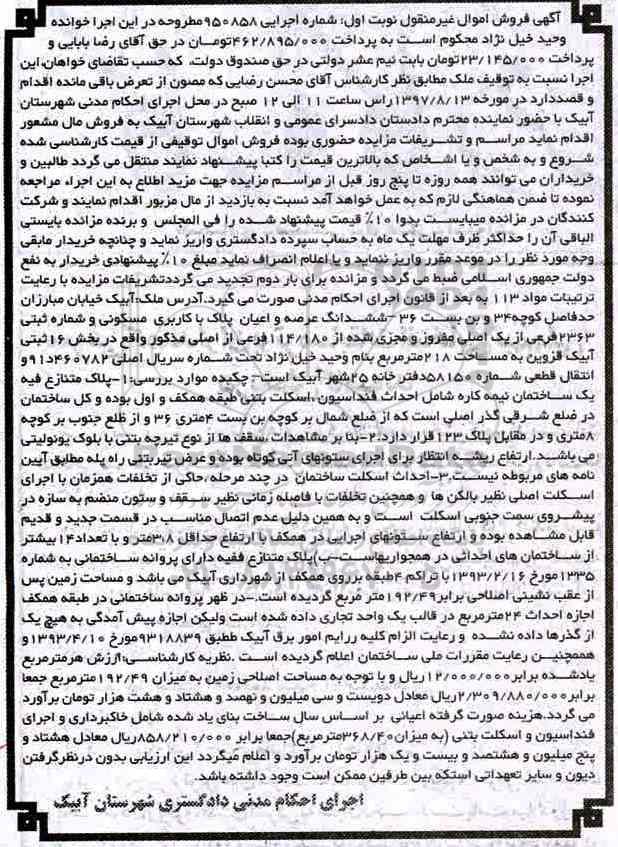 آگهی فروش اموال غیرمنقول نوبت اول: شماره اجرایی ۹۵۰۸۵۸مطروحه در این اجرا خوانده
وحید خیل نژاد محکوم است به پرداخت ۴۶۲/۸۹۵/۰۰۰تومان در حق آقای رضا بابایی و
پرداخت ۲۳/۱۴۵/۰۰۰تومان بابت نیم عشر دولتی در حق صندوق دولت، که حسب تقاضای خواهان،این
اجرا نسبت به توقیف ملک مطابق نظر کارشناس آقای محسن رضایی که مصون از تعرض باقی مانده اقدام
و قصددارد در مورخه ۱۳۹۷/۸/۱۳راس ساعت ۱۱ الی ۱۲ صبح در محل اجرای احکام مدنی شهرستان
آبیک با حضور نماینده محترم دادستان دادسرای عمومی و انقلاب شهرستان آبیک به فروش مال مشعور
اقدام نماید مراسم و تشریفات مزایده حضوری بوده فروش اموال توقیفی از قیمت کارشناسی شده
شروع و به شخص و یا اشخاص که بالاترین قیمت را کتبا پیشنهاد نمایند منتقل می گردد طالبین و
خریداران می توانند همه روزه تا پنج روز قبل از مراسم مزایده جهت مزید اطلاع به این اجراء مراجعه
نموده تا ضمن هماهنگی لازم که به عمل خواهد آمد نسبت به بازدید از مال مزبور اقدام نمایند و شرکت
کنندگان در مزایده میبایست بدوا ۱۰٪ قیمت پیشنهاد شده را فی المجلس و برنده مزانده بایستی
الباقی آن را حداکثر ظرف مهلت یک ماه به حساب سپرده دادگستری واریز نماید و چنانچه خریدار مابقی
وجه مورد نظر را در موعد مقرر واریز ننماید و یا اعلام انصراف نماید مبلغ ۱۰٪ پیشنهادی خریدار به نفع
دولت جمهوری اسلامی ضبط می گردد و مزانده برای بار دوم تجدید می گرددتشریفات مزایده با رعایت
ترتیبات مواد ۱۱۳ به بعد از قانون اجرای احکام مدنی صورت می گیرد.آدرس ملک:آبیک خیابان مبارزان
حدفاصل کوچه۳۴ و بن بست ۳۶ -ششدانگ عرصه و اعیان پلاک با کاربری مسکونی و شماره ثبتی
۲۳۶۳فرعی از یک اصلی مفروز و مجزی شده از ۱۱۴/۱۸۰فرعی از اصلی مذکور واقع در بخش ۱۶ثبتی
آبیک قزوین به مساحت ۲۱۸مترمربع بنام وحید خیل نژاد تحت شماره سریال اصلی ۴۶۰۷۸۲د۹۱و
انتقال قطعی شماره ۵۸۱۵۰دفتر خانه ۲۵شهر آبیک است- چکیده موارد بررسی:۱-پلاک متنازع فیه
یک ساختمان نیمه کاره شامل احداث فنداسیون ،اسکلت بتنی طبقه همکف و اول بوده و کل ساختمان
در ضلع شرقی گذر اصلی است که از ضلع شمال بر کوچه بن بست ۴متری ۳۶ و از ظلع جنوب بر کوچه
۸متری و در مقابل پلاک ۱۲۳قرار دارد.۲-بنا بر مشاهدات ،سقف ها از نوع تیرچه بتنی با بلوک یونولیتی
می باشید.ارتفاع ریشه انتظار برای اجرای ستونهای آتی کوتاه بوده و عرض تیربتنی راه پله مطابق آیین
نامه های مربوطه نیست.۳-احداث اسکلت ساختمان در چند مرحله ،حاکی از تخلفات همزمان با اجرای
اسکلت اصلی نظیر بالکن ها و همچنین تخلفات با فاصله زمانی نظیر سقف و ستون منضم به سازه در
پیشروی سمت جنوبی اسکلت است و به همین دلیل عدم اتصال مناسب در قسمت جدید و قدیم
قابل مشاهده بوده و ارتفاع ستونهای اجرایی در همکف با ارتفاع حداقل ۳،۸متر و با تعداد۱۴بیشتر
از ساختمان های احداثی در همجواریهاست-ب)پلاک متنازع ففیه دارای پروانه ساختمانی به شماره
۱۳۳۵مورخ ۱۳۹۳/۲/۱۶با تراکم ۴طبقه برروی همکف از شهرداری آبیک می باشد و مساحت زمین پس
از عقب نشینی اصلاحی برابر۱۹۲/۴۹متر مربع گردیده است.-در ظهر پروانه ساختمانی در طبقه همکف
اجازه احداث ۲۴مترمربع در قالب یک واحد تجاری داده شده است ولیکن اجازه پیش آمدگی به هیچ یک
از گذرها داده نشده و رعایت الزام کلیه رزایم امور برق آبیک ططبق ۹۳۱۸۸۳۹مورخ ۱۳۹۳/۴/۱۰و
هممچنین رعایت مقررات ملی ساختمان اعلام گردیده است .نظریه کارشناسی:ارزش هرمترمربع
یادشده برابر۱۲/۰۰۰/۰۰۰ریال و با توجه به مساحت اصلاحی زمین به میزان ۱۹۲/۴۹مترمربع جمعا
برابر۲/۳۰۹/۸۸۰/۰۰۰ریال معادل دویست و سی میلیون و نهصد و هشتاد و هشت هزار تومان برآورد
می گردد.هزینه صورت گرفته اعیانی بر اساس سال ساخت بنای یاد شده شامل خاکبرداری و اجرای
فنداسیون و اسکلت بتنی (به میزان۳۶۸/۴۰مترمربع)جمعا برابر ۸۵۸/۲۱۰/۰۰۰ریال معادل هشتاد و
پنج میلیون و هشتصد و بیست و یک هزار تومان برآورد و اعلام میگردد این ارزیابی بدون درنظرگرفتن
دیون و سایر تعهداتی استکه بین طرفین ممکن است وجود داشته باشد.
اجرای احکام مدنی دادگستری شهرستان آبیک